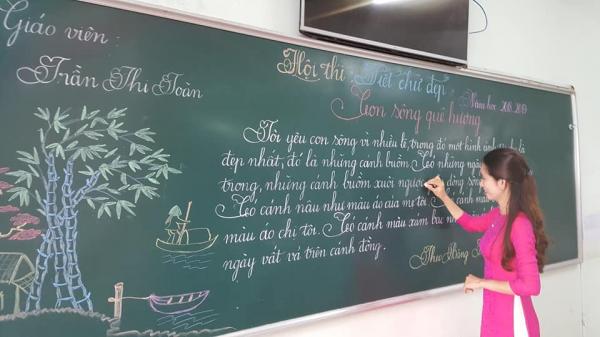 Giáo viên:
Trần Thi Toàn
Hội thi Viết chữ đẹp
Năm học 2018 2019
Con sông quê hương
Tôi yêu con sông vì nhiều lẽ, trong đó một hình ảnh
đẹp nhất, đó là những cánh buồm. Có những ngày
trong, những cánh buồm xuôi ngược dòng sông
Có cánh nâu như màu áo của mẹ tôi. Có cánh màu
màu áo chị tôi. Có cánh màu xám bạc
ngày vất vả trên cánh đồng.
Theo Băng